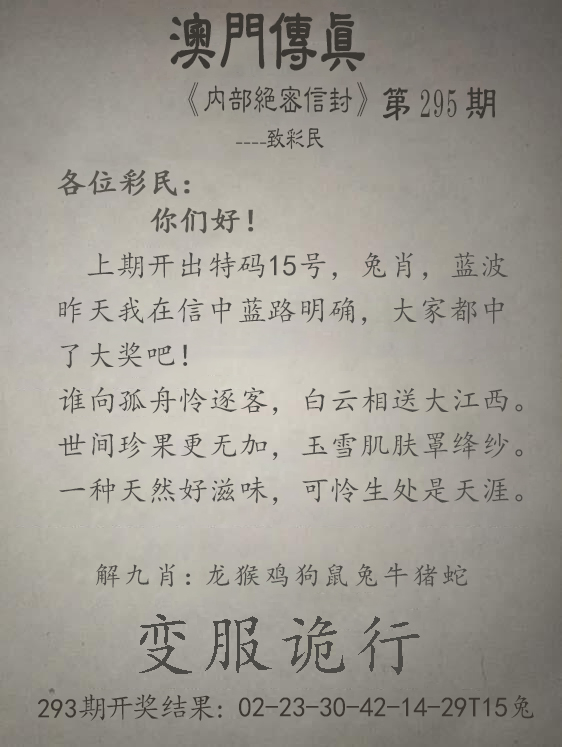 澳門傳眞
《内部絕密信封》第295期
----致彩民
各位彩民：
你们好！
上期开出特码15号，兔肖，蓝波
昨天我在信中蓝路明确，大家都中
了大奖吧！
谁向孤舟怜逐客，白云相送大江西。
世间珍果更无加，玉雪肌肤罩绛纱。
一种天然好滋味，可怜生处是天涯。
解九肖：龙猴鸡狗鼠兔牛猪蛇
变服诡行
293期开奖结果：02-23-30-42-14-29T15兔